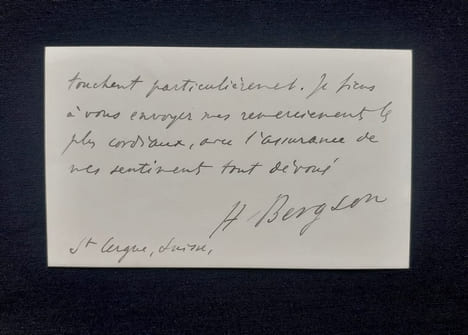 touchent particulièrement. Je tiens
à vous envoyer mes remerciements les
plus cordiaux, avec l'assurance de
mes sentiments tout dévoués
H Bergson
St Cergue, Suisse,